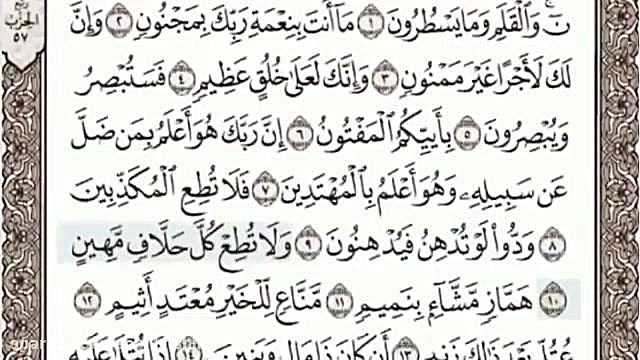 ربع
الحزب
٥٧
نٓ ۚ وَٱلْقَلَمِ وَمَا يَسْطُرُونَ ١ مَآ أَنتَ بِنِعْمَةِ رَبِّكَ بِمَجْنُونٍ ٢ وَإِنَّ
لَكَ لَأَجْرًا غَيْرَ مَمْنُونٍ ٣ وَإِنَّكَ لَعَلَىٰ خُلُقٍ عَظِيمٍ ٤ فَسَتُبْصِرُ
وَيُبْصِرُونَ ٥ بِأَييِّكُمُ ٱلْمَفْتُونُ ٦ إِنَّ رَبَّكَ هُوَ أَعْلَمُ بِمَن ضَلَّ
عَن سَبِيلِهِۦ وَهُوَ أَعْلَمُ بِٱلْمُهْتَدِينَ ٧ فَلَا تُطِعِ ٱلْمُكَذِّبِينَ
٨ وَدُّوا۟ لَوْ تُدْهِنُ فَيُدْهِنُونَ ٩ وَلَا تُطِعْ كُلَّ حَلَّافٍ مَّهِينٍ
١٠ هَمَّازٍ مَّشَّآءٍۭ بِنَمِيمٍ ١١ مَّنَّاعٍ لِّلْخَيْرِ مُعْتَدٍ أَثِيمٍ ١٢
عُتُلٍّۭ بَعْدَ ذَٰلِكَ زَنِيمٍ ١٣ أَن كَانَ ذَا مَالٍ وَبَنِينَ ١٤ إِذَا تُتْلَىٰ عَلَيْهِ